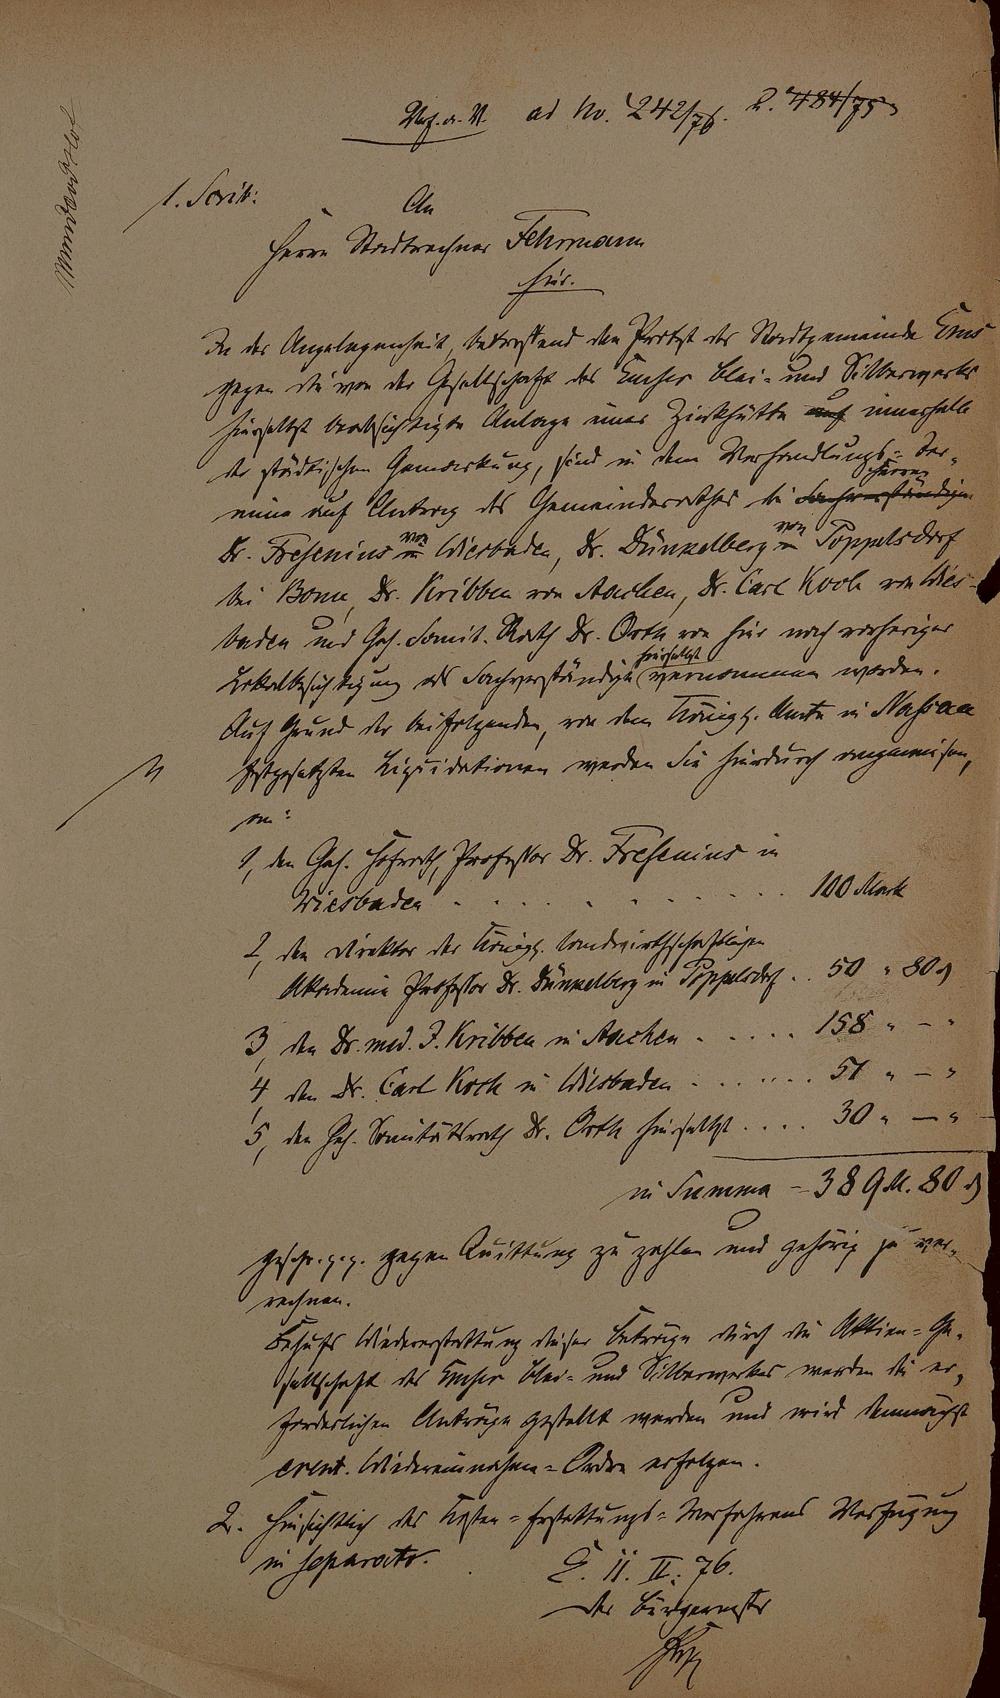 ad No. 242/76. 2. 484/75
1. Scrib:
An
Herrn Stadtrechner Fehrmann
hier.
In der Angelegenheit, betreffend den Protest der Stadtgemeinde Ems
gegen die von der Gesellschaft des Emser Blei- und Silberwerks
hierselbst beabsichtigte Anlage einer Zinkhütte auf innerhalb
der städtischen Gemarkung, sind in dem Verhandlungs-Ter-
mine auf Antrag des Gemeinderathes die Sachverständigen Herren
Dr. Fresenius von in Wiesbaden, Dr. Dünkelberg von in Poppelsdorf
bei Bonn, Dr. Kribben von Aachen, Dr. Carl Koch von Wies-
baden und Geh. Sanit. Rath Dr. Orth von hier nach vorheriger
Lokalbesichtigung als Sachverständige hierselbst vernommen worden.
Auf Grund der beifolgenden, von dem Königl. Amte in Nassau
festgesetzten Liquidationen werden Sie hierdurch angewiesen,
an:
1, den Geh. Hofrath, Professor Dr. Fresenius in
Wiesbaden . . . . . . . . . 100 Mark
2, den Direktor der Königl. landwirthschaftlichen
Akademie Professor Dr. Dünkelberg in Poppelsdorf . . 50 " 80 ₰
3, den Dr. med. J. Kribben in Aachen . . . . . 158 " — "
4, den Dr. Carl Koch in Wiesbaden . . . . . . 51 " — "
5, den Geh. Sanitätsrath Dr. Orth hierselbst . . . . 30 " — "
in Summa = 389 M. 80 ₰
gegen Quittung zu zahlen und gehörig zu ver-
rechnen.
Behufs Wiedererstattung dieser Beträge durch die Aktien-Ge-
sellschaft des Emser Blei- und Silberwerkes werden die er-
forderlichen Anträge gestellt werden und wird demnächst
event. Wiedereinnahme-Ordre erfolgen.
2. Hinsichtlich des Kosten-Erstattungs-Verfahrens Verfügung
in separato.
E. 11. II. 76.
Der Bürgermeister